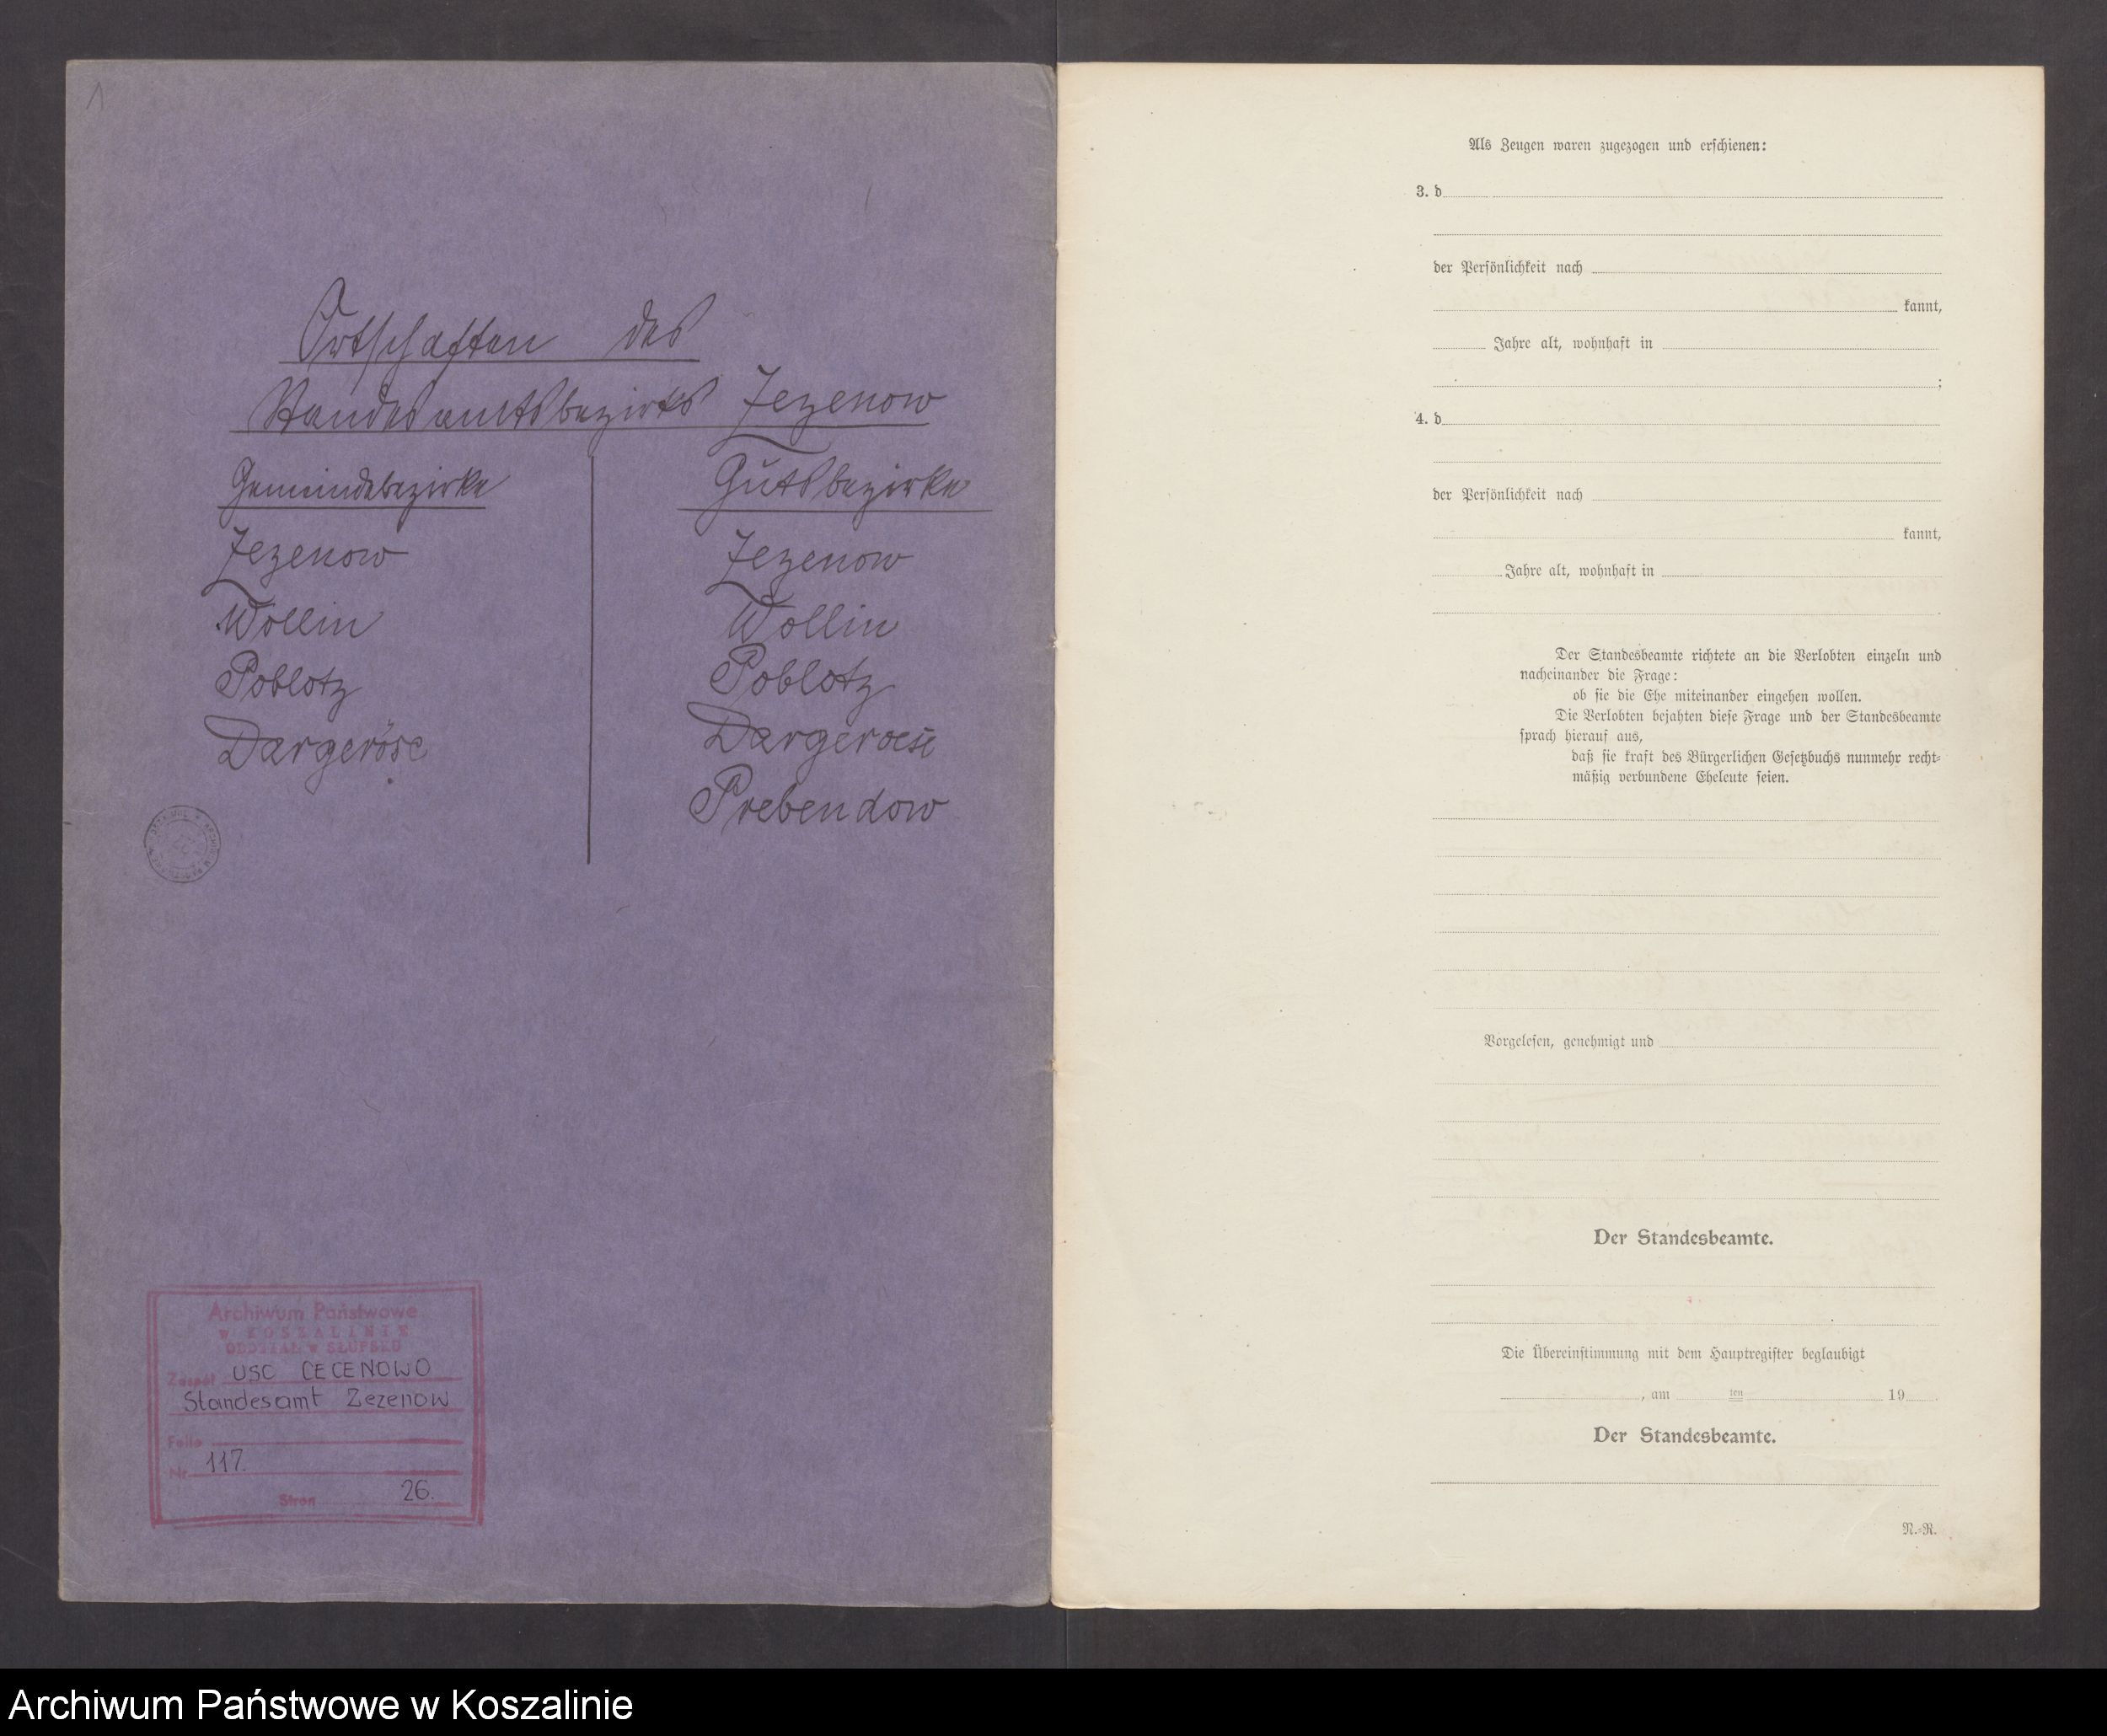 1
Ortschaften des
Standesamtsbezirks Zezenow
Gemeindebezirke
Zezenow
Wollin
Poblotz
Dargeröse
Gutsbezirke
Zezenow
Wollin
Poblotz
Dargeroese
Prebendow
Archiwum Państwowe
w KOSZALINIE
ODDZIAŁ w SŁUPSKU
Zespół USC CECENOWO
Standesamt Zezenow
Nr 117.
Stron 26.
Als Zeugen waren zugezogen und erschienen:
3. d
der Persönlichkeit nach
kannt,
Jahre alt, wohnhaft in
;
4. d
der Persönlichkeit nach
kannt,
Jahre alt, wohnhaft in
Der Standesbeamte richtete an die Verlobten einzeln und
nacheinander die Frage:
ob sie die Ehe miteinander eingehen wollen.
Die Verlobten bejahten diese Frage und der Standesbeamte
sprach hierauf aus,
daß sie kraft des Bürgerlichen Gesetzbuchs nunmehr recht-
mäßig verbundene Eheleute seien.
Vorgelesen, genehmigt und
Der Standesbeamte.
Die Übereinstimmung mit dem Hauptregister beglaubigt
, am ten 19
Der Standesbeamte.
N.-R.
Archiwum Państwowe w Koszalinie